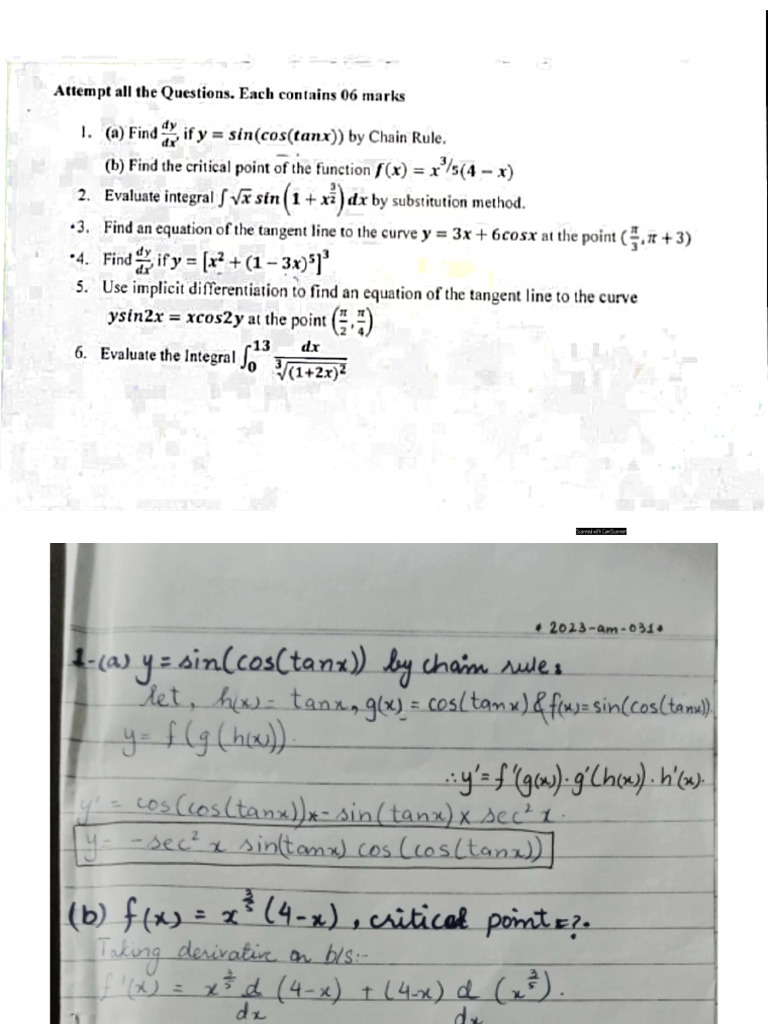 Attempt all the Questions. Each contains 06 marks
1. (a) Find dy/dx, if y = sin(cos(tanx)) by Chain Rule.
(b) Find the critical point of the function f(x) = x^3/5(4 − x)
2. Evaluate integral ∫ √x sin (1 + x^3/2) dx by substitution method.
•3. Find an equation of the tangent line to the curve y = 3x + 6cosx at the point (π/3, π + 3)
•4. Find dy/dx, if y = [x² + (1 − 3x)⁵]³
5. Use implicit differentiation to find an equation of the tangent line to the curve
ysin2x = xcos2y at the point (π/2, π/4)
6. Evaluate the Integral ∫₀¹³ dx/∛(1+2x)²
Scanned with CamScanner
* 2023-am-031*
1-(a) y = sin(cos(tanx)) by chain rule:
let, h(x) = tanx, g(x) = cos(tanx) & f(x) = sin(cos(tanx)).
y = f(g(h(x)).
∴ y' = f'(g(x)) · g'(h(x)) · h'(x).
y' = cos(cos(tanx)) x - sin(tanx) x sec² x.
y = - sec² x sin(tanx) cos(cos(tanx))
(b) f(x) = x^3/5 (4-x), critical point =?.
Taking derivative on b/s:-
f'(x) = x^3/5 d/dx (4-x) + (4-x) d/dx (x^3/5).